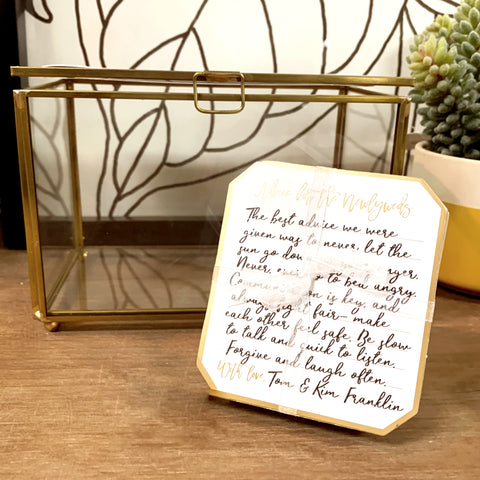 Newlyweds
The best advice we were
given was to never, let the
sun go down
Never, to bed angry.
is key, and
fair— make
each other feel safe. Be slow
to talk and quick to listen.
Forgive and laugh often.
With love, Tom & Kim Franklin